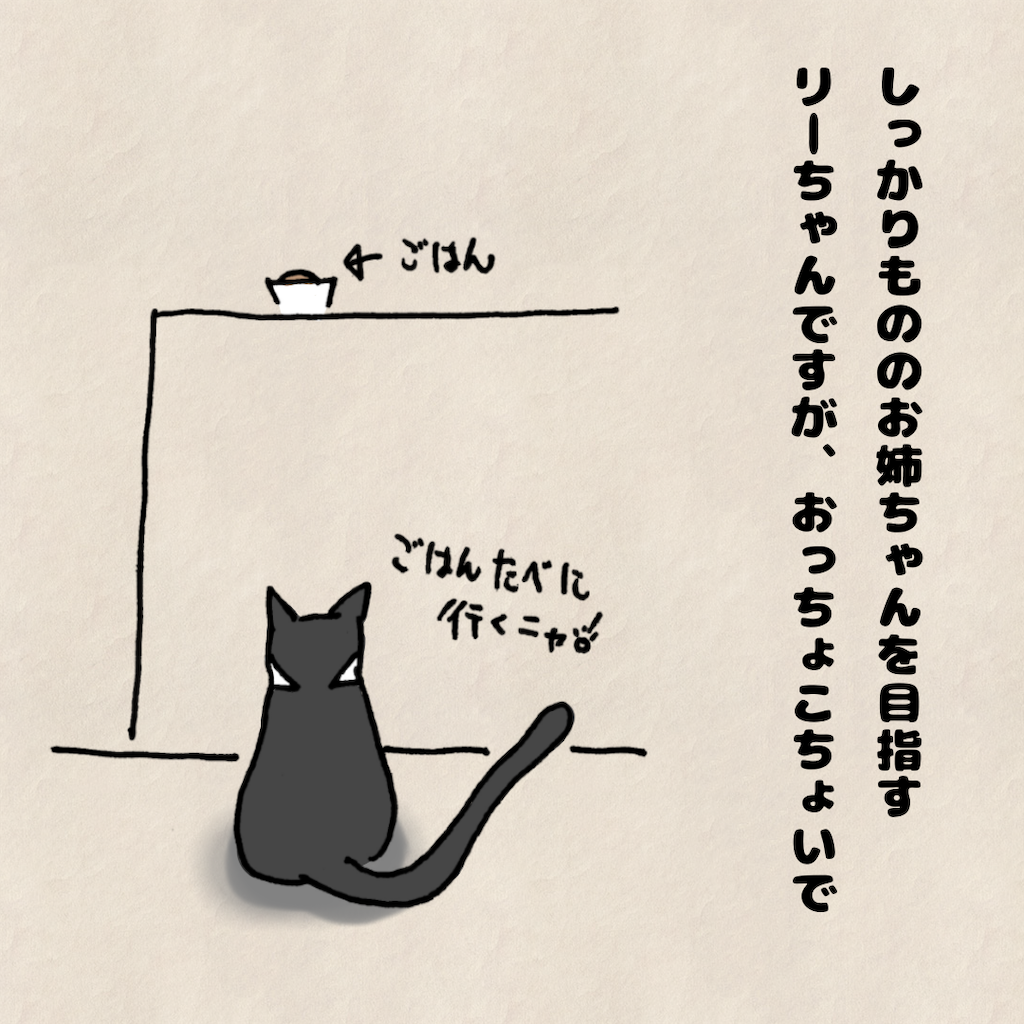 しっかりもののお姉ちゃんを目指す
リーちゃんですが、おっちょこちょいで
ごはん
ごはんたべに
行くニャ